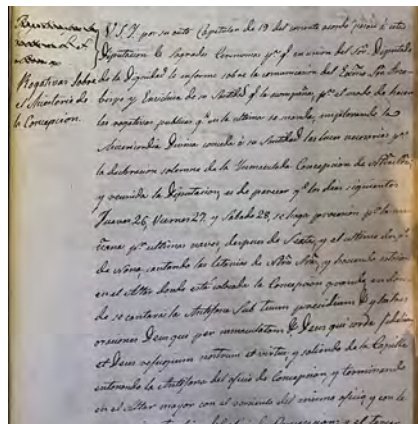 Rogativas sobre
el Misterio de
la Concepcion.
V.S.Y. por su auto Capitular de 19 del corriente acordó pasase á esta
Diputacion de Sagradas Ceremonias pª qᵉ en union del Sor. Diputado
de la Dignidad le informe sobre la comunicacion del Exmo Sor Arzo-
bispo y Enciclica de su Santidad qᵉ la acompaña, pᵃ el modo de hacer
las rogativas publicas qᵉ en la ultima se manda, implorando la
Misericordia Divina conceda á su Santidad las luces necesarias pª
la declaracion solemne de la Inmaculada Concepcion de Ntra
y reunida la Diputacion, es de parecer qᵉ los dias siguientes
Jueves 26, Viernes 27, y Sabado 28, se haga procesion pʳ la ma-
ñana pʳ ultimas naves, despues de Sexta, y el ultimo dia pʳ
de Nona, cantando las letanias de Ntra Sra, y haciendo estacion
en el Altar donde está colocada la Concepcion grande, en don-
de se cantará la Antifona Sub tuum praesidium & y las tres
oraciones Deus qui per immaculatam & Deus qui corda fidelium
et Deus refugium nostrum et virtus, y saliendo de la Capilla
entonando la Antifona del oficio de Concepcion y terminando
en el Altar mayor con el del mismo oficio, y con la